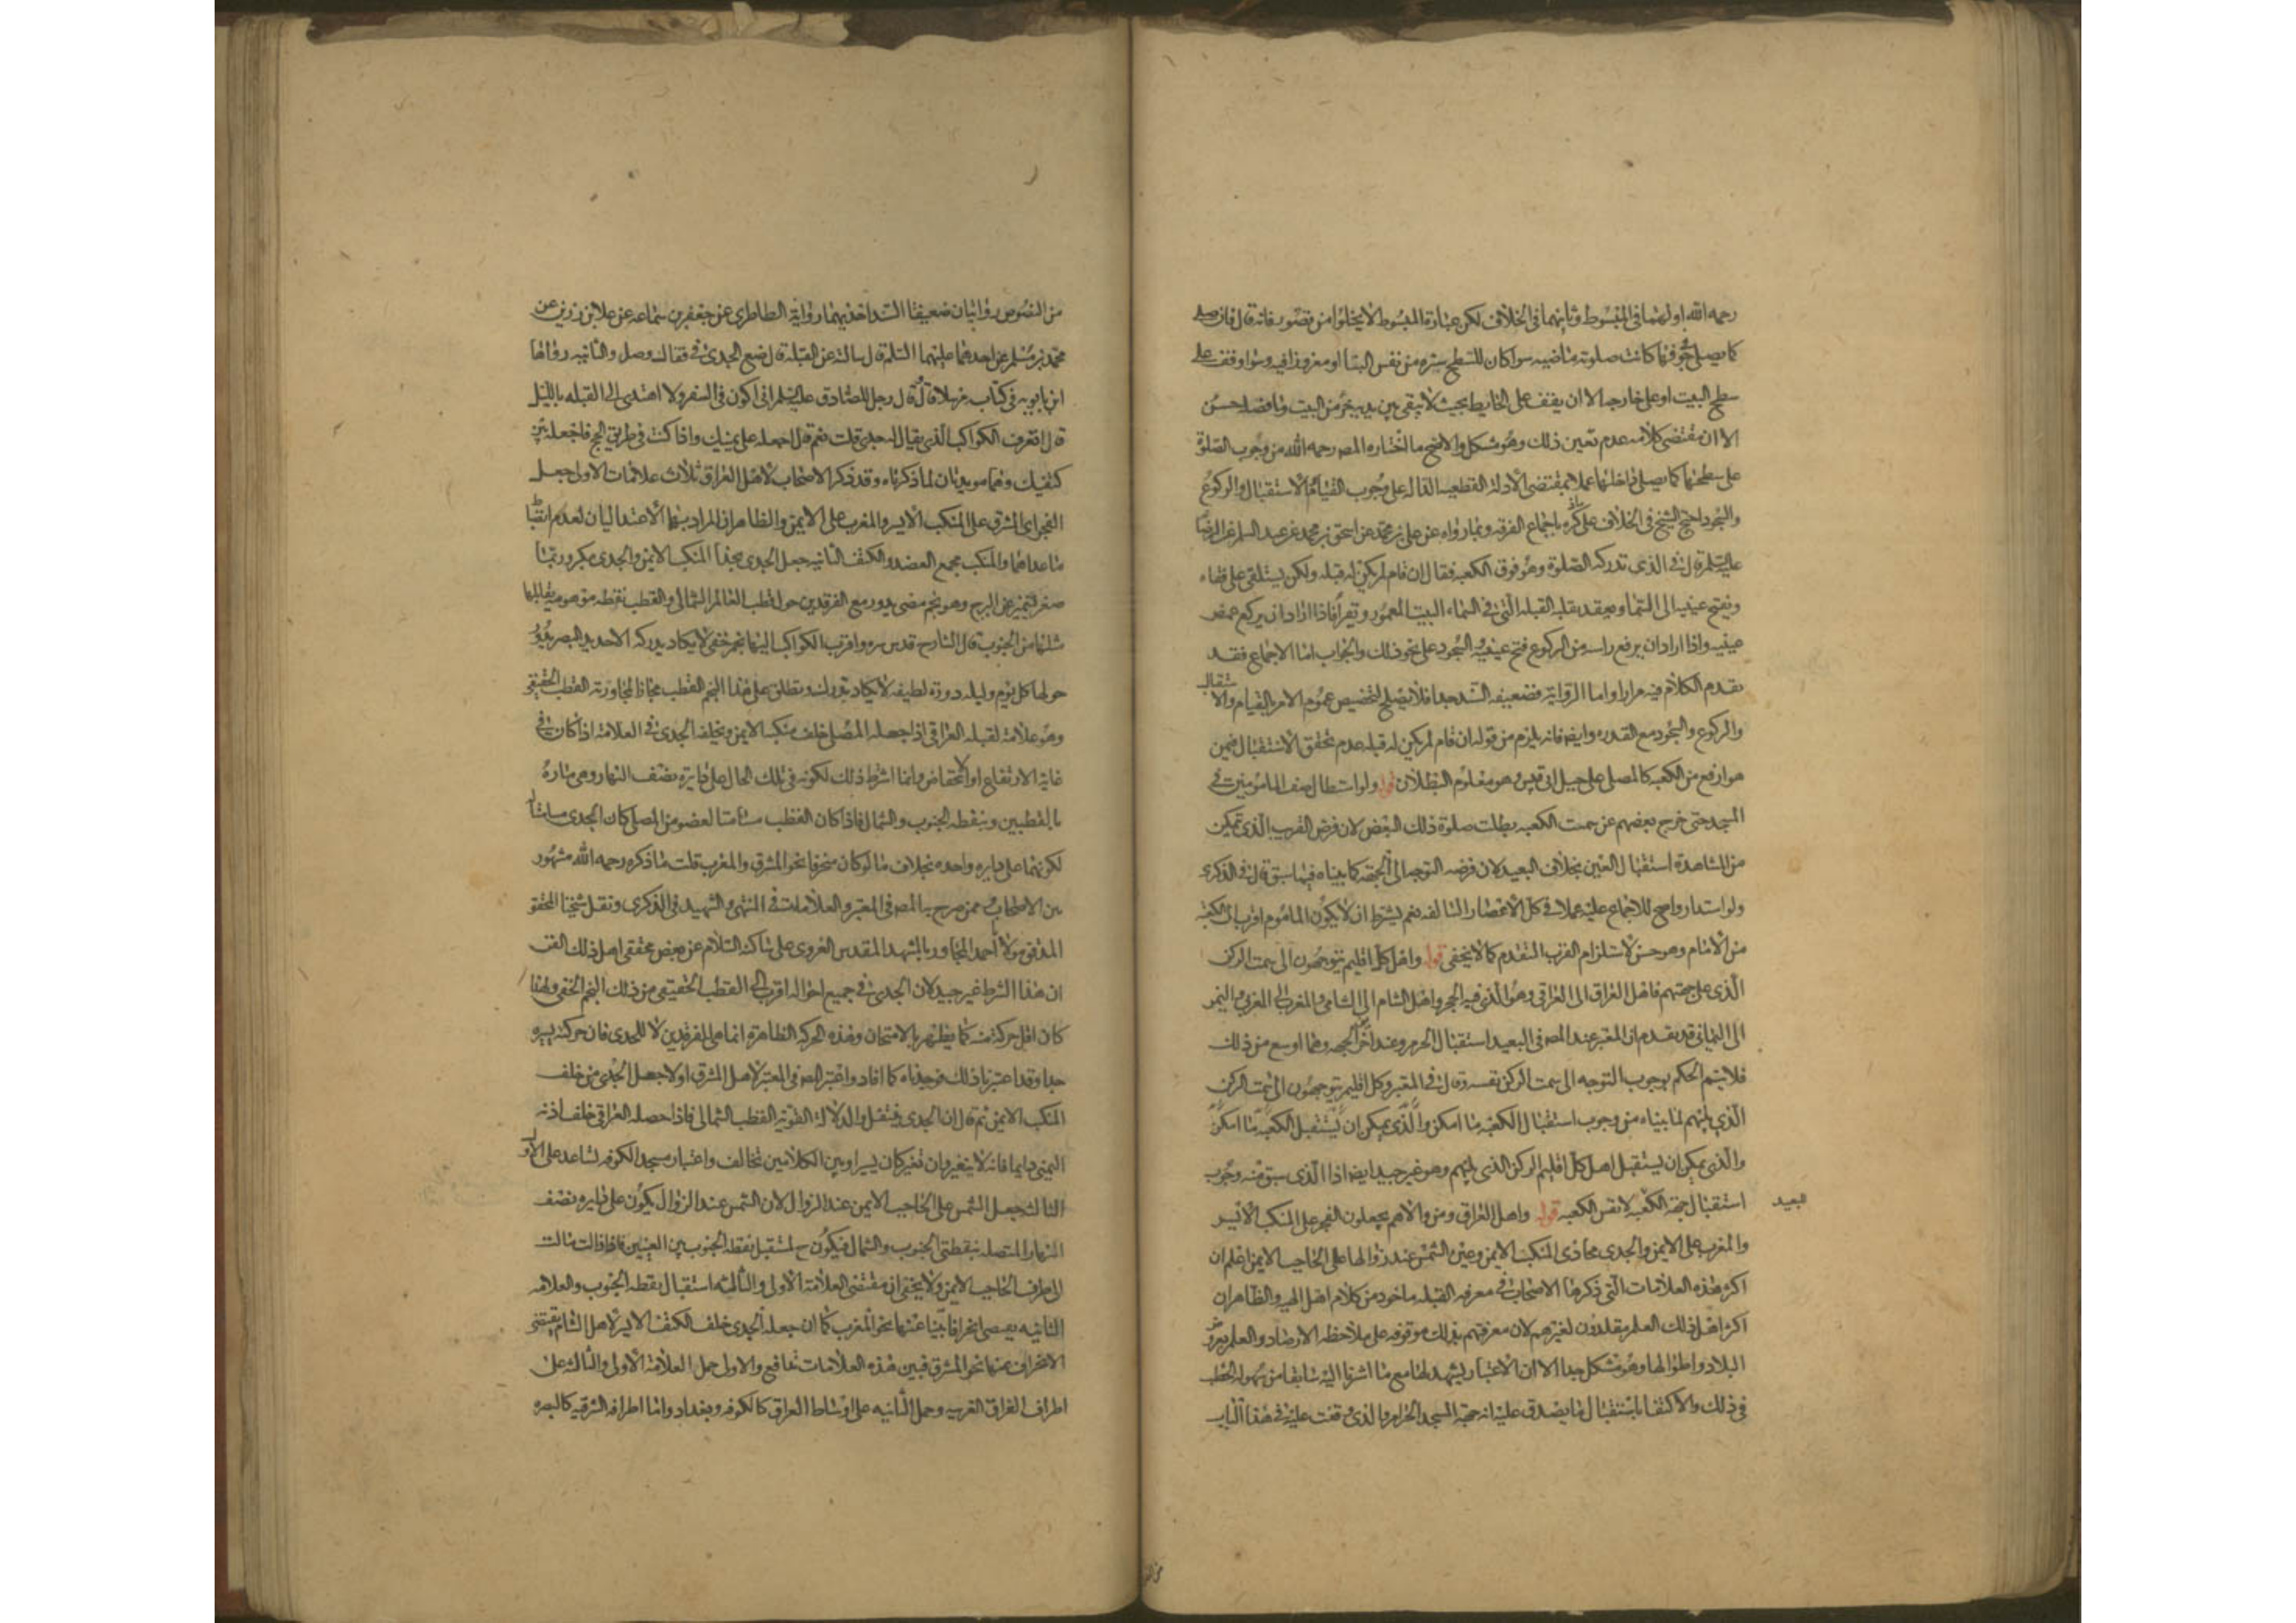 رحمه الله اولهما فى المبسوط وثانيهما فى الخلاف لكن عبارة المبسوط لا يخلوا من قصور فانه قال فان صلى
كما يصلى جوفها كانت صلوته ماضيه سوا كان للسطح ستره من نفس البنا او مغروزا فيه وسوا وقف على
سطح البيت او على خارجه الا ان يقف على الحايط بحيث لا يبقى بين يديه جزء من البيت وما فصله حسن
الا ان مقتضى كلامه عدم تعين ذلك وهو مشكل والاصح ما اختاره المصـ رحمه الله من وجوب الصلوة
على سطحها كما يصلى داخلها عملا بمقتضى الادلة القطعيه الداله على وجوب القيام والاستقبال والركوع
والسجود احتج الشيخ فى الخلاف على ما ذكره باجماع الفرقه وبما رواه عن على بن محمد عن اسحق بن محمد عن عبد السلم عن الرضا
عليه السلم قال فى الذى تدركه الصلوة وهو فوق الكعبه فقال ان قام لم يكن له قبله ولكن يستلقى على قفاه
ويفتح عينيه الى السما ويعقد بقلبه القبله التى فى السماء البيت المعمور ويقرأ فاذا اراد ان يركع غمض
عينيه واذا اراد ان يرفع راسه من الركوع فتح عينيه والسجود على نحو ذلك والجواب اما الاجماع فقد
تقدم الكلام فيه مرارا واما الرواية فضعيفه السند جدا فلا يصلح لتخصيص عموم الامر بالقيام والاستقبال
والركوع والسجود مع القدره وايضا فانه يلزم من قوله ان قام لم يكن له قبله عدم تحقق الاستقبال فيمن
هو ارفع من الكعبه كالمصلى على جبل ابى قبيس وهو معلوم البطلان قوله ولو استطال صف المامومين فى
المسجد حتى خرج بعضهم عن سمت الكعبه بطلت صلوة ذلك البعض لان فرض القريب الذى تمكن
من المشاهدة استقبال العين بخلاف البعيد لان فرضه التوجه الى الجهة كما بيناه فيما سبق قال فى الذكرى
ولو استدار واصح للاجماع عليه عملا فى كل الاعصار السالفه نعم يشترط ان لا يكون الماموم اقرب الى الكعبة
من الامام وهو حسن لاستلزام القرب التقدم كما لا يخفى قوله واهل كل اقليم يتوجهون الى سمت الركن
الذى على جهتهم فاهل العراق الى العراقى وهو الذى فيه الحجر واهل الشام الى الشامى والمغرب الى المغربى واليمن
الى اليمانى قد تقدم ان المعتبر عند المصـ فى البعيد استقبال الحرم وعند اخرين الجهه وهما اوسع من ذلك
فلا يتم الحكم بوجوب التوجه الى سمت الركن نفسه وقال فى المعتبر وكل اقليم يتوجهون الى سمت الركن
الذى يليهم لما بيناه من وجوب استقبال الكعبه ما امكن والذى يمكن ان يستقبل الكعبه ما امكن
والذى يمكن ان يستقبل اهل كل اقليم الركن الذى يليهم وهو غير جيد ايضا اذا الذى سبق منه وجوب
استقبال جهة الكعبه لا نفس الكعبه قوله واهل العراق ومن والاهم يجعلون الفجر على المنكب الايسر
البعيد
والمغرب على الايمن والجدى محاذى المنكب الايمن وعين الشمس عند زوالها على الحاجب الايمن اعلم ان
اكثر هذه العلامات التى ذكرها الاصحاب فى معرفه القبله ماخوذ من كلام اهل الهيه والظاهر ان
اكثر اهل ذلك العلم يقلدون لغيرهم لان معرفتهم بذلك موقوفه على ملاحظه الارصاد والعلم بعروض
البلاد واطوالها وهو مشكل جدا الا ان الاعتبار يشهد لها مع ما اشرنا اليه سابقا من سهوله الخطب
فى ذلك والاكتفا باستقبال ما يصدق عليه انه جهة المسجد الحرام والذى وقفت عليه فى هذا الباب
من النصوص روايتان ضعيفتا السند احديهما رواية الطاطرى عن جعفر بن سماعه عن علا بن رزين عن
محمد بن مسلم عن احدهما عليهما السلم قال سالته عن القبلة قال ضع الجدى فى قفاك وصل والثانيه رواها
ابن بابويه فى كتاب مرسلا قال قال رجل للصادق عليه السلم انى اكون فى السفر ولا اهتدى الى القبله بالليل
قال اتعرف الكواكب الذى يقال له جدى قلت نعم قال اجعله على يمينك واذا كنت فى طريق الحج فاجعله بين
كتفيك وهما مويدتان لما ذكرناه وقد ذكر الاصحاب لاهل العراق ثلاث علامات الاولى جعل
الفجر اى المشرق على المنكب الايسر والمغرب على الايمن والظاهر ان المراد بهما الاعتداليان لعدم انضباط
ما عداهما والمنكب مجمع العضد والكتف الثانيه جعل الجدى بحذا المنكب الايمن والجدى مكبر وربما
صغر ليتميز عن البرج وهو نجم مضى يدور مع الفرقدين حول قطب العالم الشمالى والقطب نقطه موهومه يقابلها
مثلها من الجنوب قال الشارح قدس سره واقرب الكواكب اليها نجم خفى لا يكاد يدركه الا حديد البصر يدور
حولها كل يوم وليله دورة لطيفه لا يكاد تدرك ويطلق على هذا النجم القطب مجازا لمجاورته القطب الحقيقى
وهو علامة لقبله العراقى اذا جعله المصلى خلف منكبه الايمن ويخلفه الجدى فى العلامة اذا كان فى
غاية الارتفاع او الانخفاض وانما اشترط ذلك لكونه فى تلك الحال على دايرة نصف النهار وهى مارة
بالقطبين وبنقطه الجنوب والشمال فاذا كان القطب مسامتا لعضو من المصلى كان الجدى مسامتا له
لكونهما على دايره واحده بخلاف ما لو كان منحرفا نحو المشرق والمغرب قلت ما ذكره رحمه الله مشهور
بين الاصحاب وممن صرح به المصـ فى المعتبر والعلامة فى المنتهى والشهيد فى الذكرى ونقل شيخنا المحقق
المدقق مولانا احمد المجاور بالمشهد المقدس الغروى على ساكنه السلام عن بعض محققى اهل ذلك الفن
ان هذا الشرط غير جيد لان الجدى فى جميع احواله اقرب الى القطب الحقيقى من ذلك النجم الخفى ولهذا
كان اقل حركة منه كما يظهر بالامتحان وهذه الحركة الظاهره انما هى للفرقدين لا للجدى فان حركته يسيره
جدا وقد اعتبرنا ذلك فوجدناه كما افاد واعتبر المصـ فى المعتبر لاهل المشرق اولا جعل الجدى من خلف
المنكب الايمن ثم قال ان الجدى ينتقل والدلالة القوية القطب الشمالى فاذا حصله العراقى خلف اذنه
اليمنى دايما فانه لا يتغير وان تغير كان يسيرا وبين الكلامين تخالف واعتبار مسجد الكوفه تساعد على الاول
الثالثه جعل الشمس على الحاجب الايمن عند الزوال لان الشمس عند الزوال يكون على دايره نصف
النهار المتصله بنقطتى الجنوب والشمال فيكون ح لمستقبل نقطه الجنوب بين العينين فاذا زالت مالت
الى طرف الحاجب الايمن ولا يخفى ان مقتضى العلامة الاولى والثالثه استقبال نقطه الجنوب والعلامه
الثانيه يقتضى انحرافا بينا عنها نحو المغرب كما ان جعله الجدى خلف الكتف الايسر لاهل الشام يقتضى
الانحراف عنها نحو المشرق فبين هذه العلامات تدافع والاولى حمل العلامة الاولى والثالثه على
اطراف العراق الغربيه وحمل الثانيه على اوساط العراق كالكوفه وبغداد واما اطرافه الشرقيه كالبصره